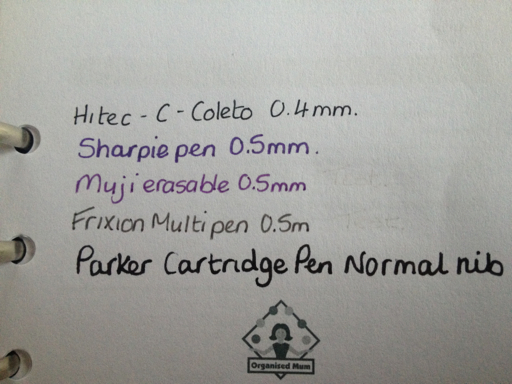 Hitec-C-Coleto 0.4mm.
Sharpie pen 0.5mm.
Muji erasable 0.5mm
Frixion Multipen 0.5m
Parker Cartridge Pen Normal nib
Organised Mum